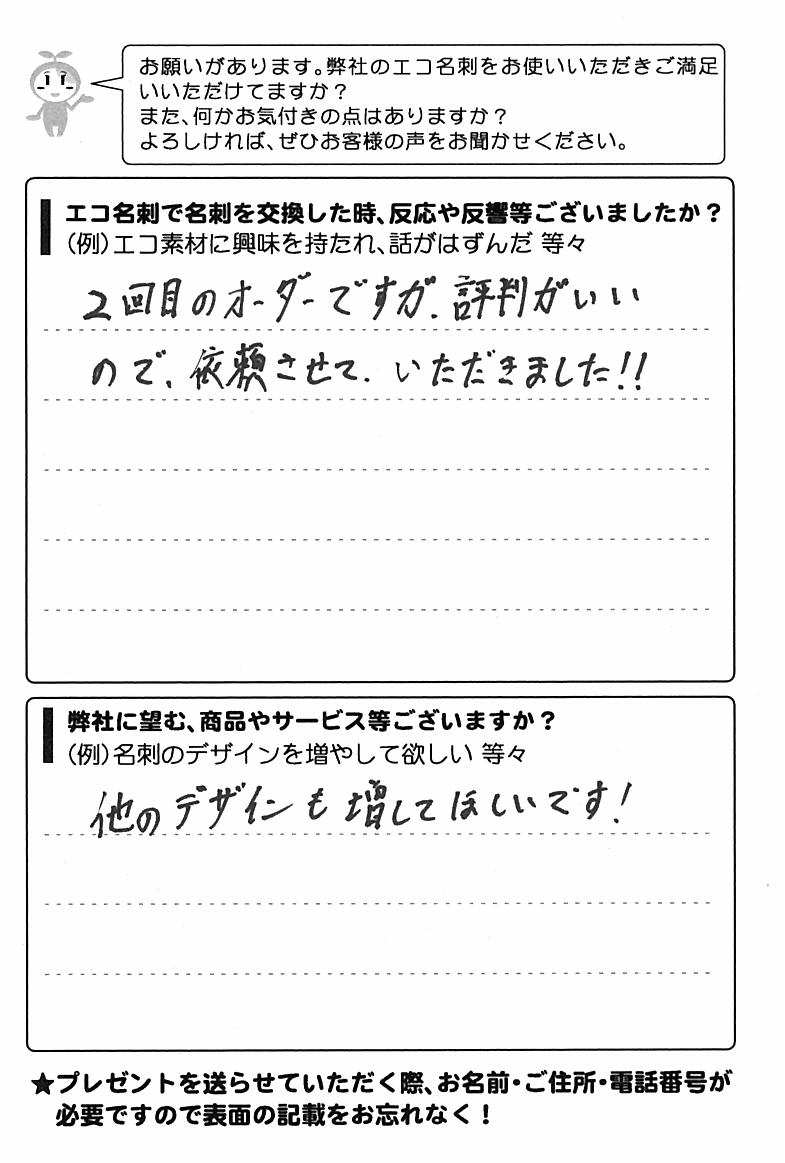 お願いがあります。弊社のエコ名刺をお使いいただきご満足
いいただけてますか？
また、何かお気付きの点はありますか？
よろしければ、ぜひお客様の声をお聞かせください。
エコ名刺で名刺を交換した時、反応や反響等ございましたか？
（例）エコ素材に興味を持たれ、話がはずんだ 等々
2回目のオーダーですが、評判がいい
ので、依頼させて、いただきました!!
弊社に望む、商品やサービス等ございますか？
（例）名刺のデザインを増やして欲しい 等々
他のデザインも増してほしいです！
★プレゼントを送らせていただく際、お名前・ご住所・電話番号が
必要ですので表面の記載をお忘れなく！